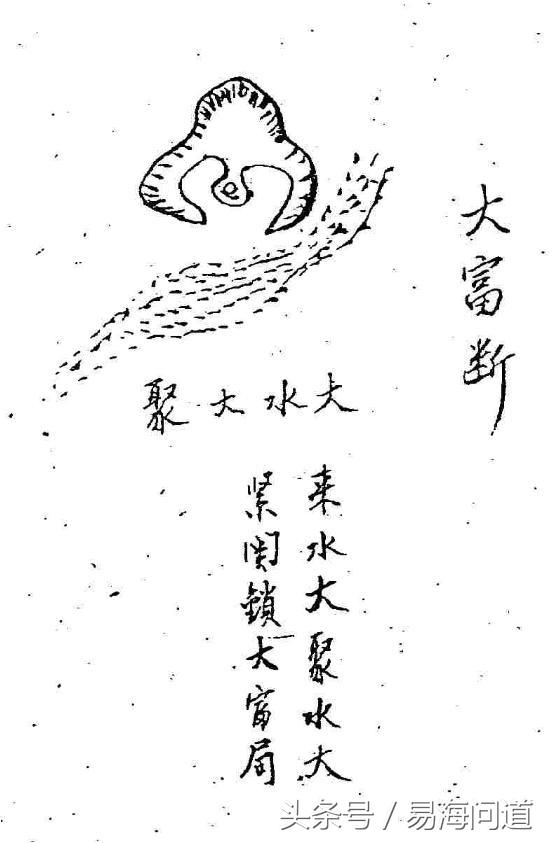 大富断
大水大聚
来水大聚水大
紧関鎖大富局
头条号 / 易海问道